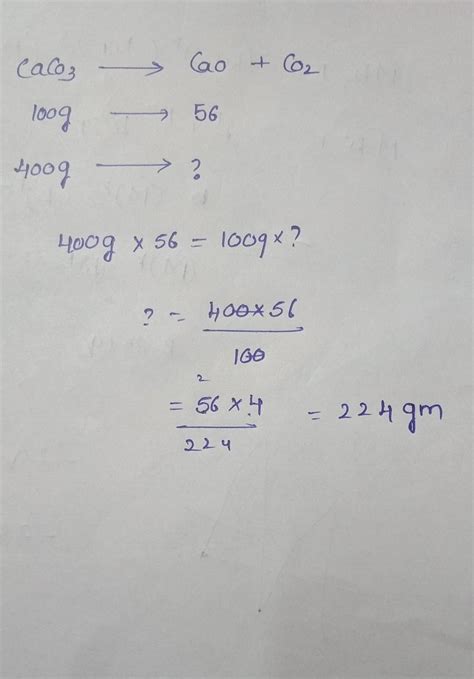 CaCo3 → Cao + Co2
100g → 56
400g → ?
400g × 56 = 100g × ?
? = 400×56
100
2
= 56 × 4 = 224 gm
224